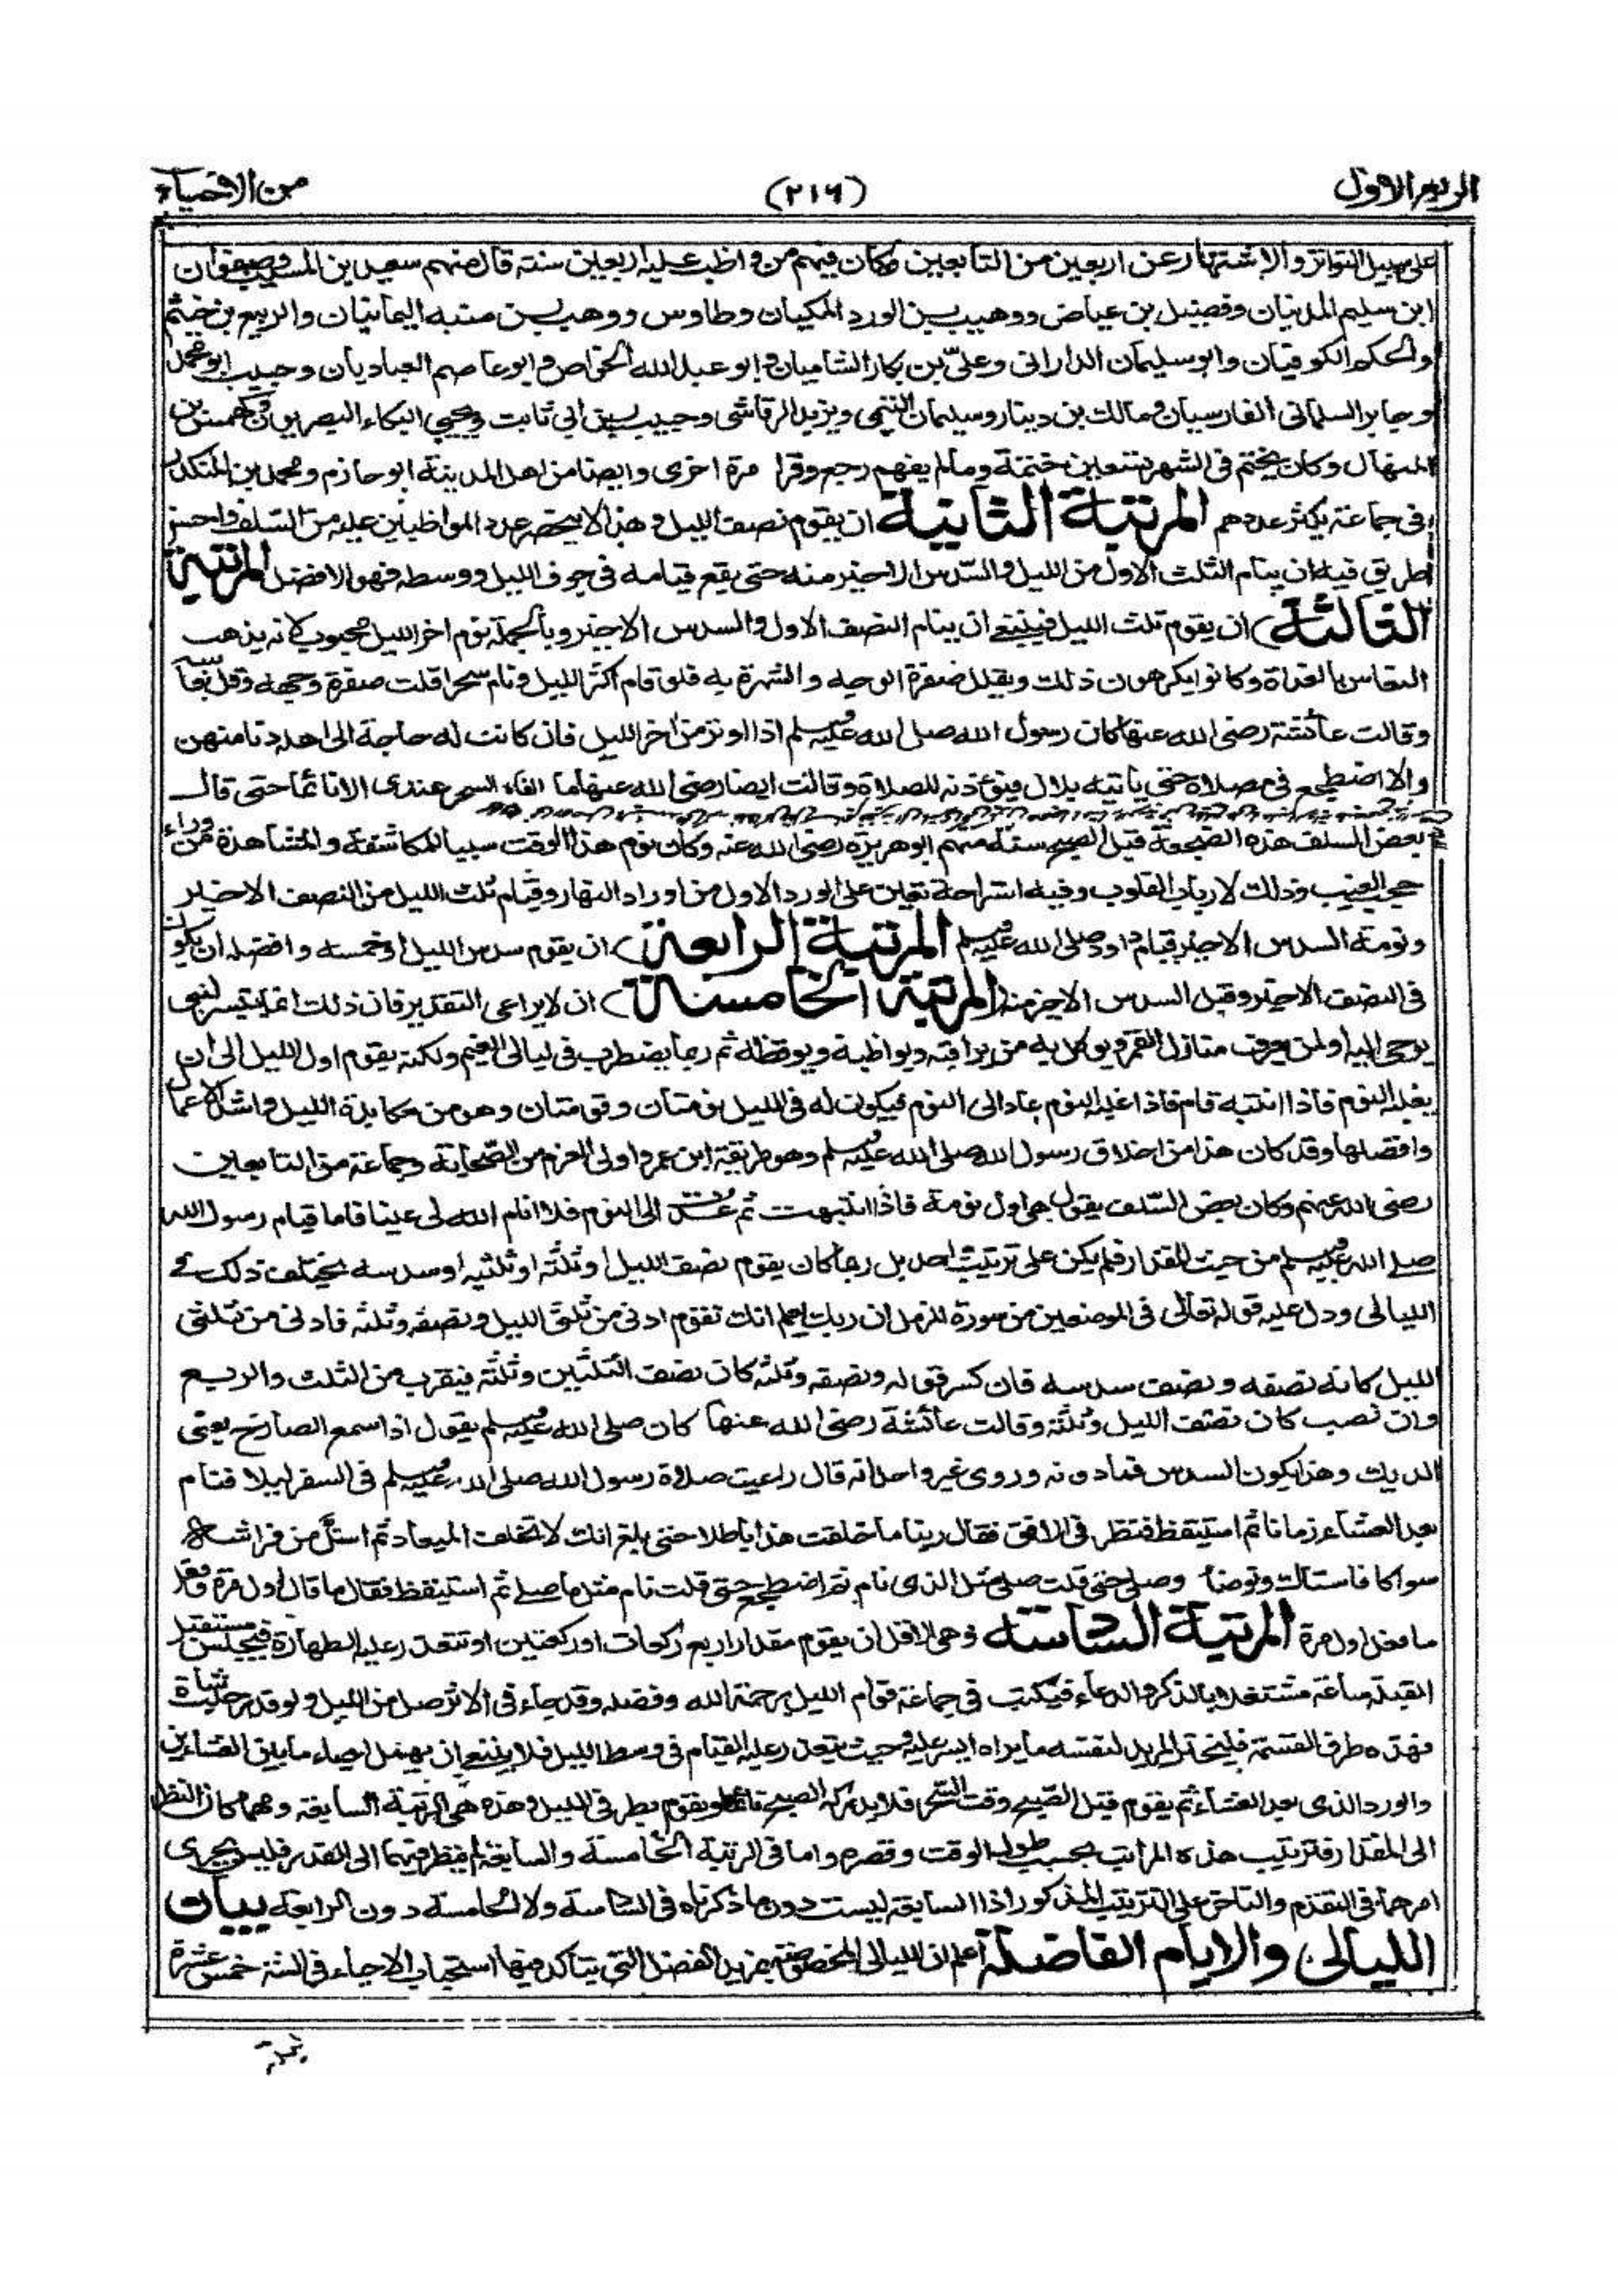 الربع الاول
(٢١٦)
من الاحياء
على سبيل التواتر والاشتهار عن اربعين من التابعين وكان فيهم من واظب عليه اربعين سنة قال منهم سعيد بن المسيب وصفوان
ابن سليم المدنيان وفضيل بن عياض ووهيب بن الورد المكيان وطاوس ووهب بن منبه اليمانيان والربيع بن خيثم
والحكم الكوفيان وابو سليمان الدارانى وعلى بن بكار الشاميان وابو عبد الله الخواص وابو عاصم العباديان وحبيب ابو محمد
وجابر السلمانى الفارسيان ومالك بن دينار وسليمان التيمى ويزيد الرقاشى وحبيب بن ابي ثابت ويحيى البكاء البصريون وكهمس بن
المنهال وكان يختم فى الشهر تسعين ختمة وما لم يفهم رجع وقرا مرة اخرى وايضا من اهل المدينة ابو حازم ومحمد بن المنكدر
فى جماعة يكثر عددهم المرتبة الثانية ان يقوم نصف الليل وهذا لا ينحصر عدد المواظبين عليه من السلف واحسن
طريق فيه ان ينام الثلث الاول من الليل والسدس الاخير منه حتى يقع قيامه فى جوف الليل ووسطه فهو الافضل المرتبة
الثالثة ان يقوم ثلث الليل فينبغى ان ينام النصف الاول والسدس الاخير وبالجملة نوم اخر الليل محبوب لانه يذهب
النعاس بالغداة وكانوا يكرهون ذلك ويقلل صفرة الوجه والشهرة به فلو قام اكثر الليل ونام سحرا قلت صفرة وجهه وقل نعاسه
وقالت عائشة رضى الله عنها كان رسول الله صلى الله عليه وسلم اذا اوتر من اخر الليل فان كانت له حاجة الى اهله دنا منهن
والا اضطجع فى مصلاه حتى ياتيه بلال فيؤذنه للصلاة وقالت ايضا رضى الله عنها ما الفاه السحر عندى الا نائما حتى قال
بعض السلف هذه الضجعة قبل الصبح سنة منهم ابو هريرة رضى الله عنه وكان نوم هذا الوقت سببا للمكاشفة والمشاهدة من وراء
حجب الغيب وذلك لارباب القلوب وفيه استراحة تعين على الورد الاول من اوراد النهار وقيام ثلث الليل من النصف الاخير
ونومة السدس الاخير قيام داود صلى الله عليه وسلم المرتبة الرابعة ان يقوم سدس الليل او خمسه وافضله ان يكون
فى النصف الاخير وقبل السدس الاخير منه المرتبة الخامسة ان لا يراعى التقدير فان ذلك انما يتيسر لنبى
يوحى اليه او لمن يعرف منازل القمر ويوكل به من يراقبه ويواظبه ويوقظه ثم ربما يضطرب فى ليالى الغيم ولكنه يقوم اول الليل الى ان
يغلبه النوم فاذا انتبه قام فاذا غلبه النوم عاد الى النوم فيكون له فى الليل نومتان وقومتان وهو من مكابدة الليل واشد الاعمال
وافضلها وقد كان هذا من اخلاق رسول الله صلى الله عليه وسلم وهو طريقة ابن عمر واولى العزم من الصحابة وجماعة من التابعين
رضى الله عنهم وكان بعض السلف يقول هى اول نومة فاذا انتبهت ثم عدت الى النوم فلا انام الله لى عينا فاما قيام رسول الله
صلى الله عليه وسلم من حيث المقدار فلم يكن على ترتيب واحد بل ربما كان يقوم نصف الليل او ثلثه او ثلثيه او سدسه يختلف ذلك فى
الليالى ودل عليه قوله تعالى فى الموضعين من سورة المزمل ان ربك يعلم انك تقوم ادنى من ثلثى الليل ونصفه وثلثه فادنى من ثلثى
الليل كانه نصفه ونصف سدسه فان كسر قوله ونصفه وثلثه كان نصف الثلثين وثلثه فيقرب من الثلث والربع
وان نصب كان نصف الليل وثلثه وقالت عائشة رضى الله عنها كان صلى الله عليه وسلم يقول اذا سمع الصارخ يعنى
الديك وهذا يكون السدس فما دونه وروى غير واحد انه قال راعيت صلاة رسول الله صلى الله عليه وسلم فى السفر ليلا فنام
بعد العشاء زمانا ثم استيقظ فنظر فى الافق فقال ربنا ما خلقت هذا باطلا حتى بلغ انك لا تخلف الميعاد ثم استل من فراشه
سواكا فاستاك وتوضا وصلى حتى قلت صلى مثل الذى نام ثم اضطجع حتى قلت نام مثل ما صلى ثم استيقظ فقال ما قال اول مرة وفعل
ما فعل اول مرة المرتبة السادسة وهى الاقل ان يقوم مقدار اربع ركعات او ركعتين او تتعذر عليه الطهارة فيجلس مستقبل
القبلة ساعة مشتغلا بالذكر والدعاء فيكتب فى جماعة قوام الليل برحمة الله وفضله وقد جاء فى الاثر صل من الليل ولو قدر حلب شاة
فهذه طرق القسمة فليختر المريد لنفسه ما يراه ايسر عليه وحيث يتعذر عليه القيام فى وسط الليل فلا ينبغى ان يهمل احياء ما بين العشاءين
والورد الذى بعد العشاء ثم يقوم قبل الصبح وقت السحر فلا يدركه الصبح نائما ويقوم بطرفى الليل وهذه هى المرتبة السابعة ومهما كان النظر
الى المقدار فترتيب هذه المراتب بحسب طول الوقت وقصره واما فى الرتبة الخامسة والسابعة لم ينظر فيهما الى القدر فليس يجرى
امرهما فى التقدم والتاخر على الترتيب المذكور اذا السابعة ليست دون ما ذكرناه فى السادسة ولا الخامسة دون الرابعة بيان
الليالى والايام الفاضلة اعلم ان الليالى المخصوصة بمزيد الفضل التى يتاكد فيها استحباب الاحياء فى السنة خمس عشرة